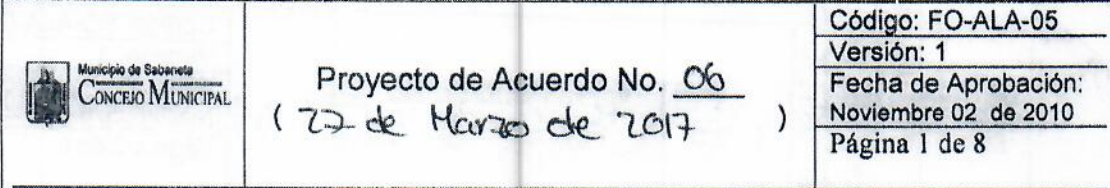 Municipio de Sabaneta
CONCEJO MUNICIPAL
Proyecto de Acuerdo No. 06
( 22 de Marzo de 2017 )
Código: FO-ALA-05
Versión: 1
Fecha de Aprobación:
Noviembre 02 de 2010
Página 1 de 8